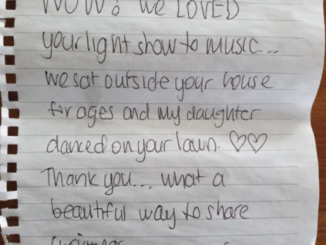 WOW! We LOVED
your light show to music...
we sat outside your house
for ages and my daughter
danced on your lawn ♡♡
Thank you... what a
beautiful way to share